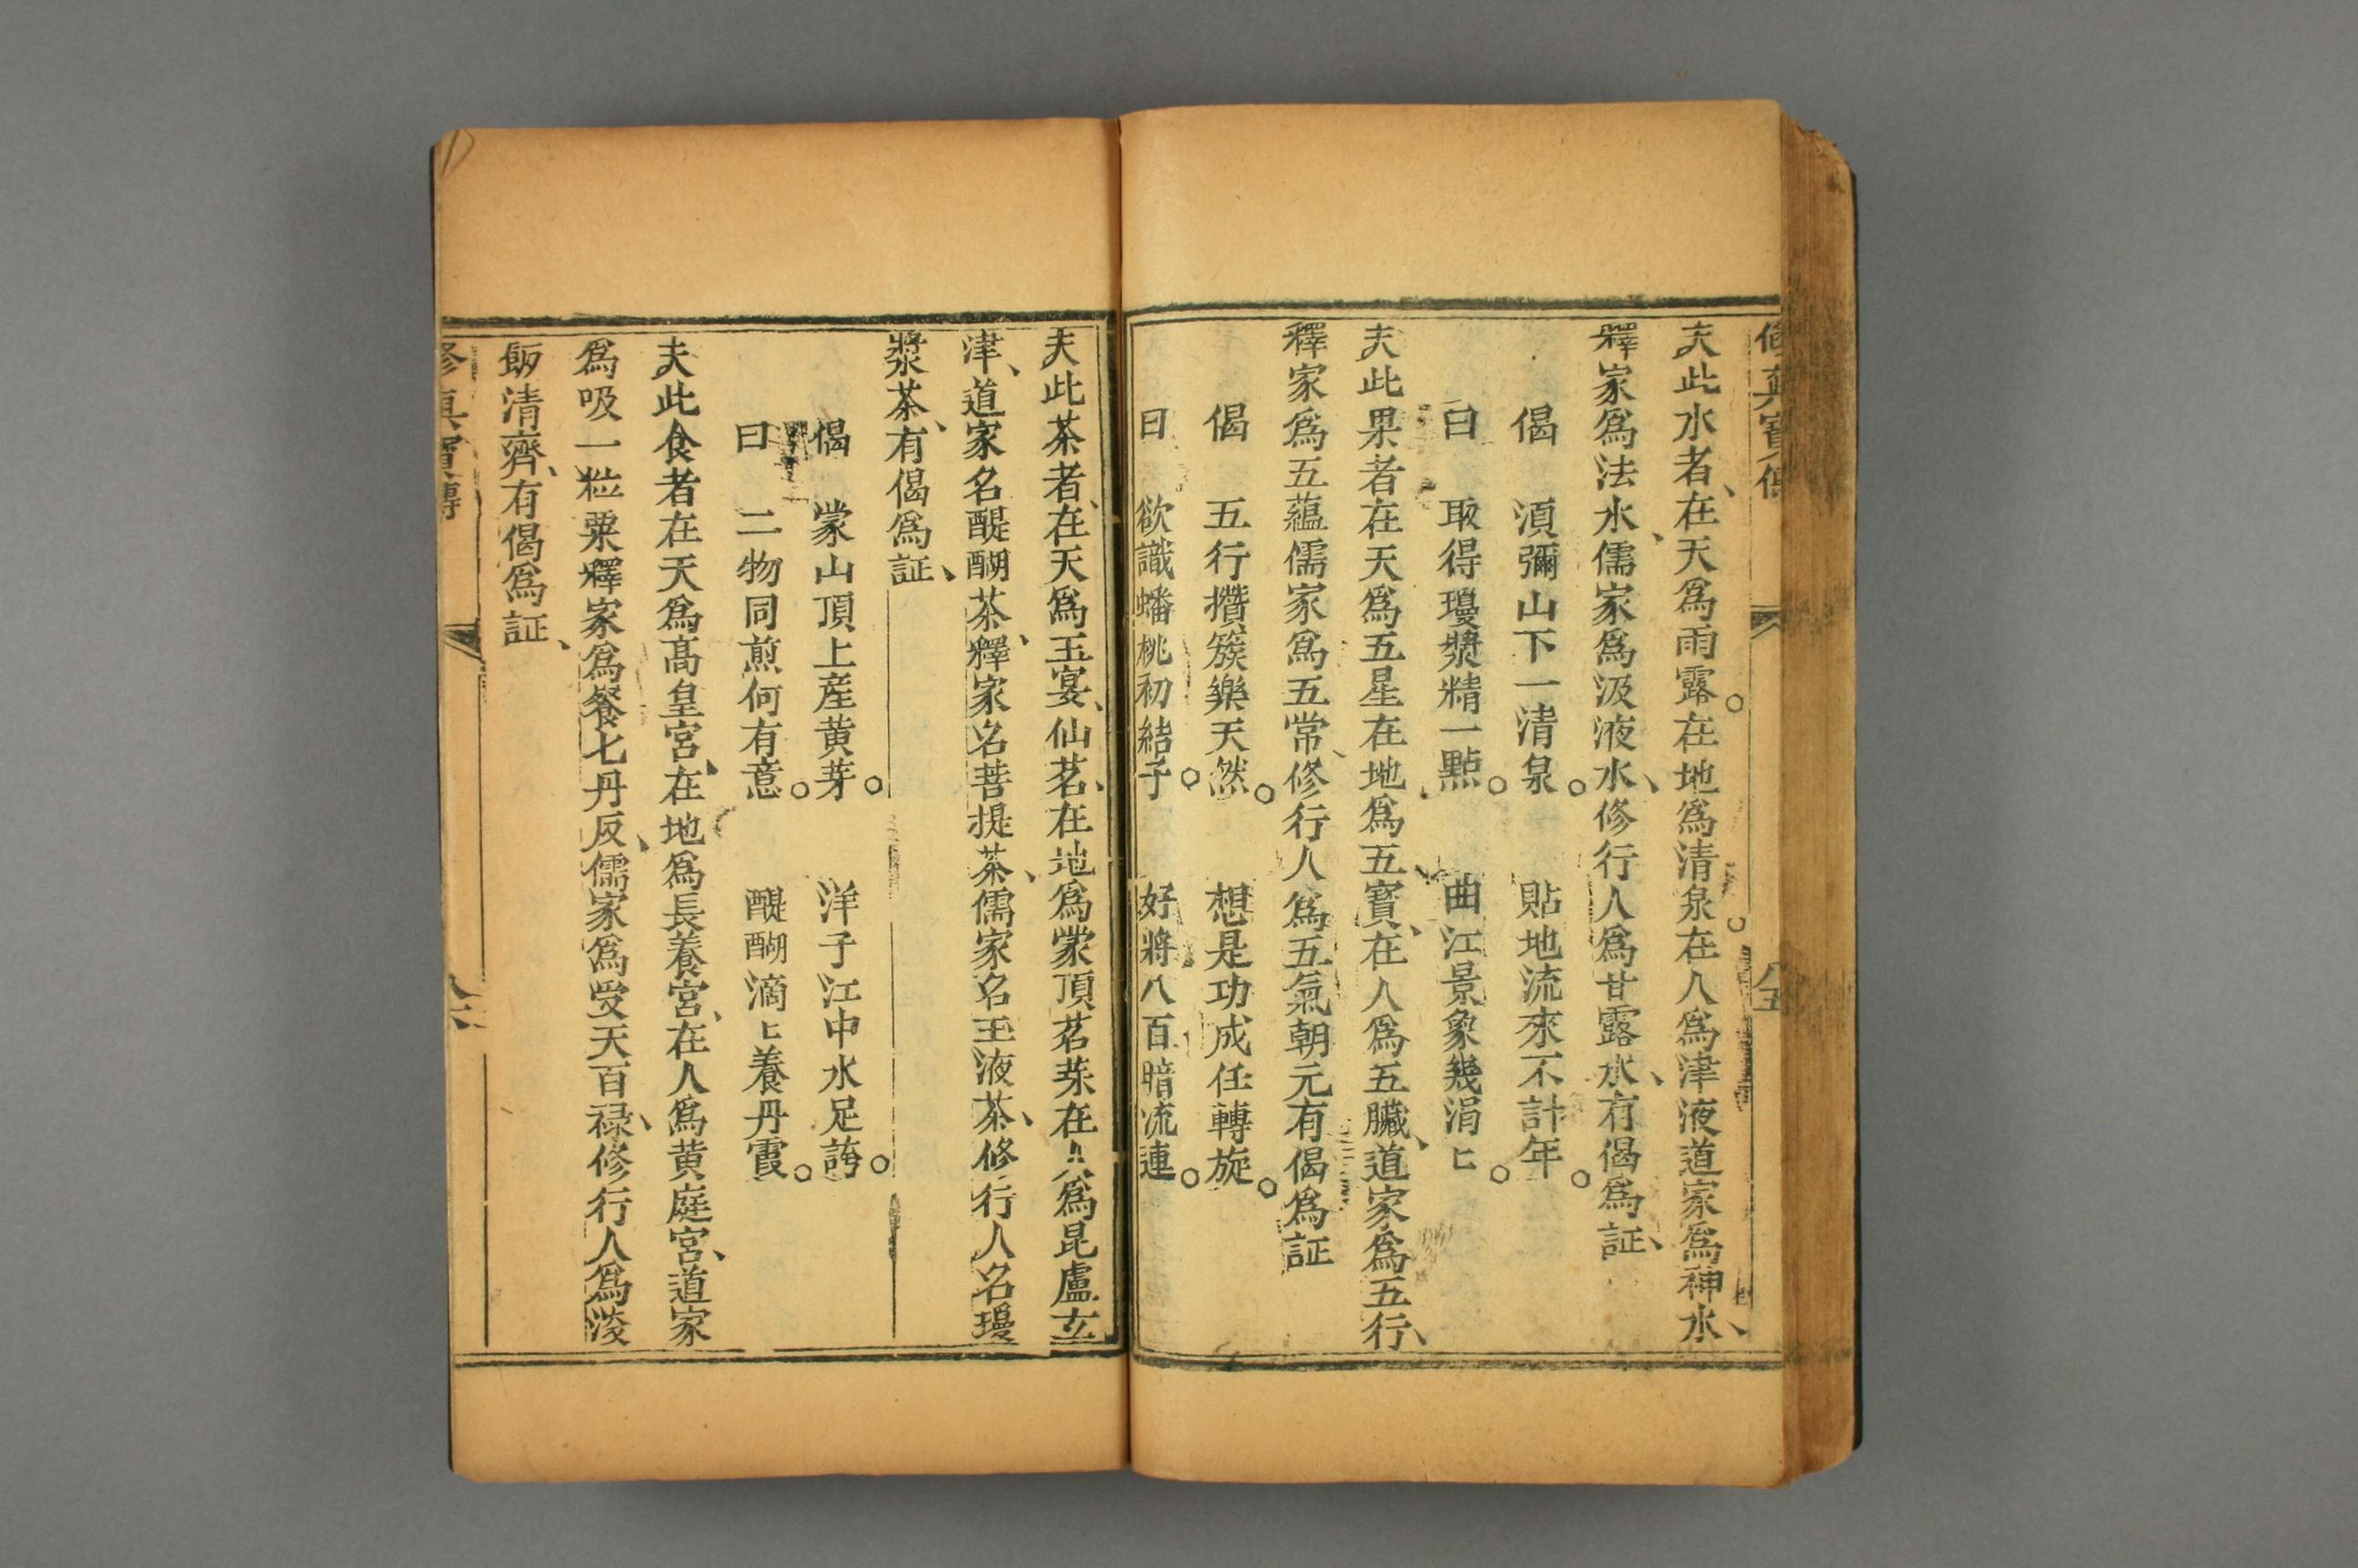 修真寶傳
八五
夫此水者、在天爲雨露。在地爲清泉。在人爲津液道家爲神水、
釋家爲法水、儒家爲汲液水、修行人爲甘露水、有偈爲証、
偈　須彌山下一清泉。　貼地流來不計年。
曰　取得瓊漿精一點。　曲江景象幾涓〻。
夫此果者在天爲五星在地爲五寳、在人爲五臟、道家爲五行、
釋家爲五蘊儒家爲五常、修行人爲五氣朝元有偈爲証
偈　五行攢簇樂天然。　想是功成任轉旋。
曰　欲識蟠桃初結子。　好將八百暗流連。
夫此茶者、在天爲玉宴、仙茗、在地爲蒙頂茗茱在人爲昆盧玄
津、道家名醍醐茶、釋家名菩提茶、儒家名玉液茶、修行人名瓊
漿茶、有偈爲証、
偈　蒙山頂上産黄芽。　洋子江中水足誇。
曰　二物同煎何有意。　醍醐滴〻養丹霞。
夫此食者在天爲髙皇宮、在地爲長養宮、在人爲黄庭宮、道家
爲吸一粒粟釋家爲餐七丹反、儒家爲受天百禄、修行人爲淩
飯清齊、有偈爲証、
修真寶傳
八六